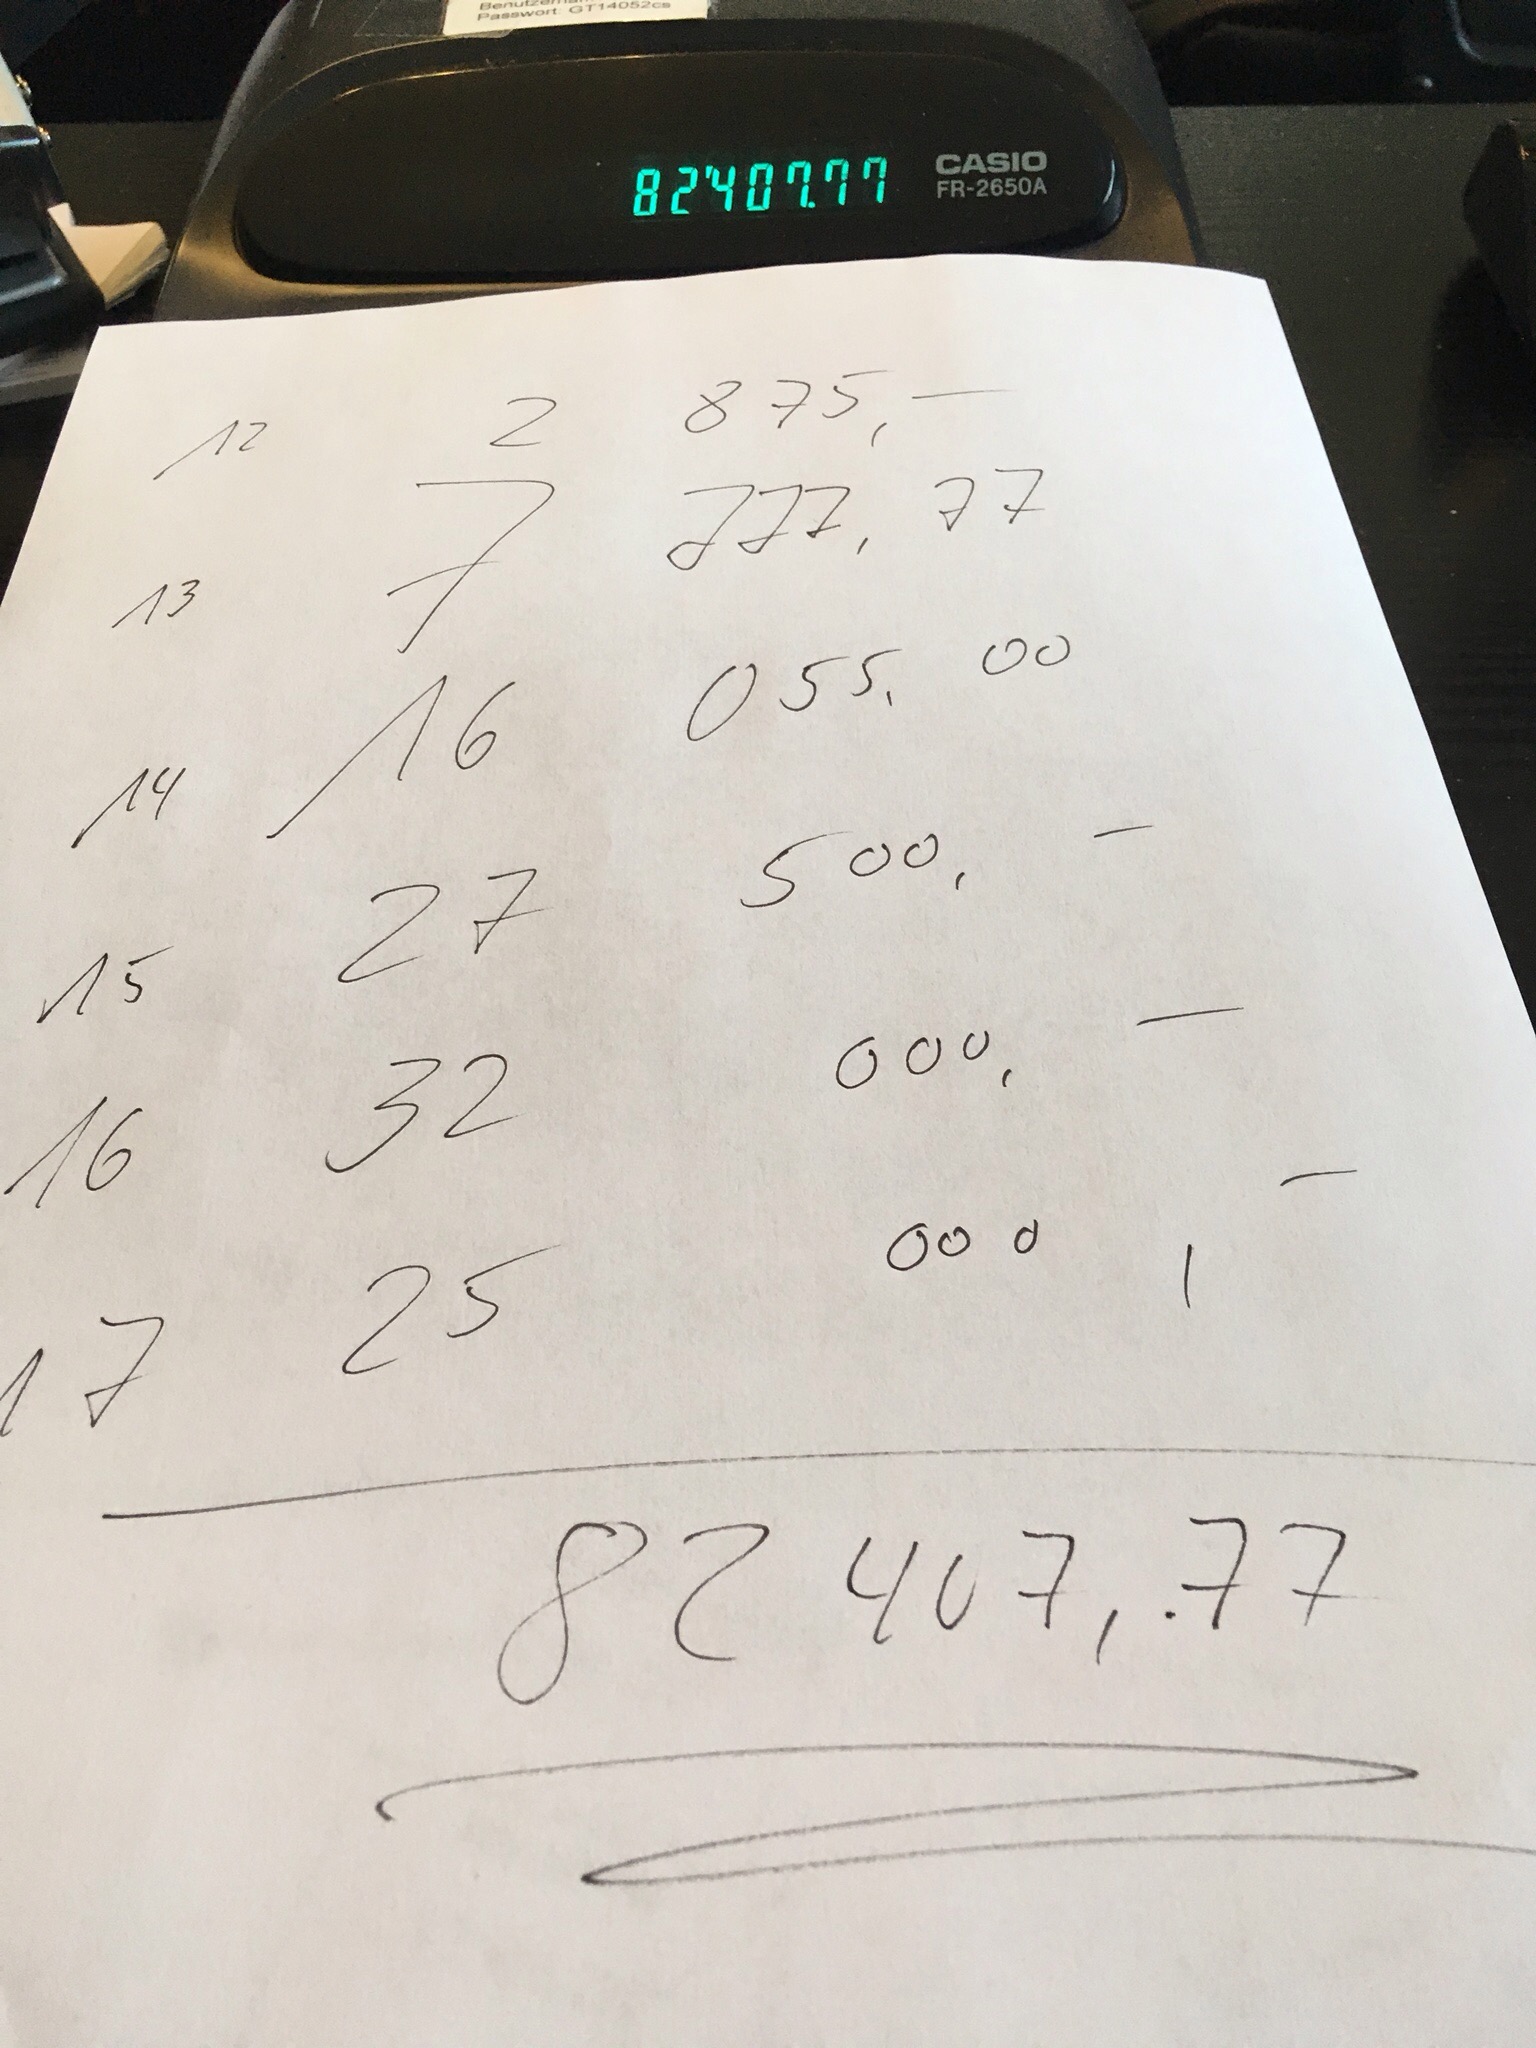 Passwort: GT14052cs
82'407.77
CASIO
FR-2650A
12 2 875,—
13 7 777,77
14 16 055,00
15 27 500,—
16 32 000,—
17 25 000,—
82 407,.77